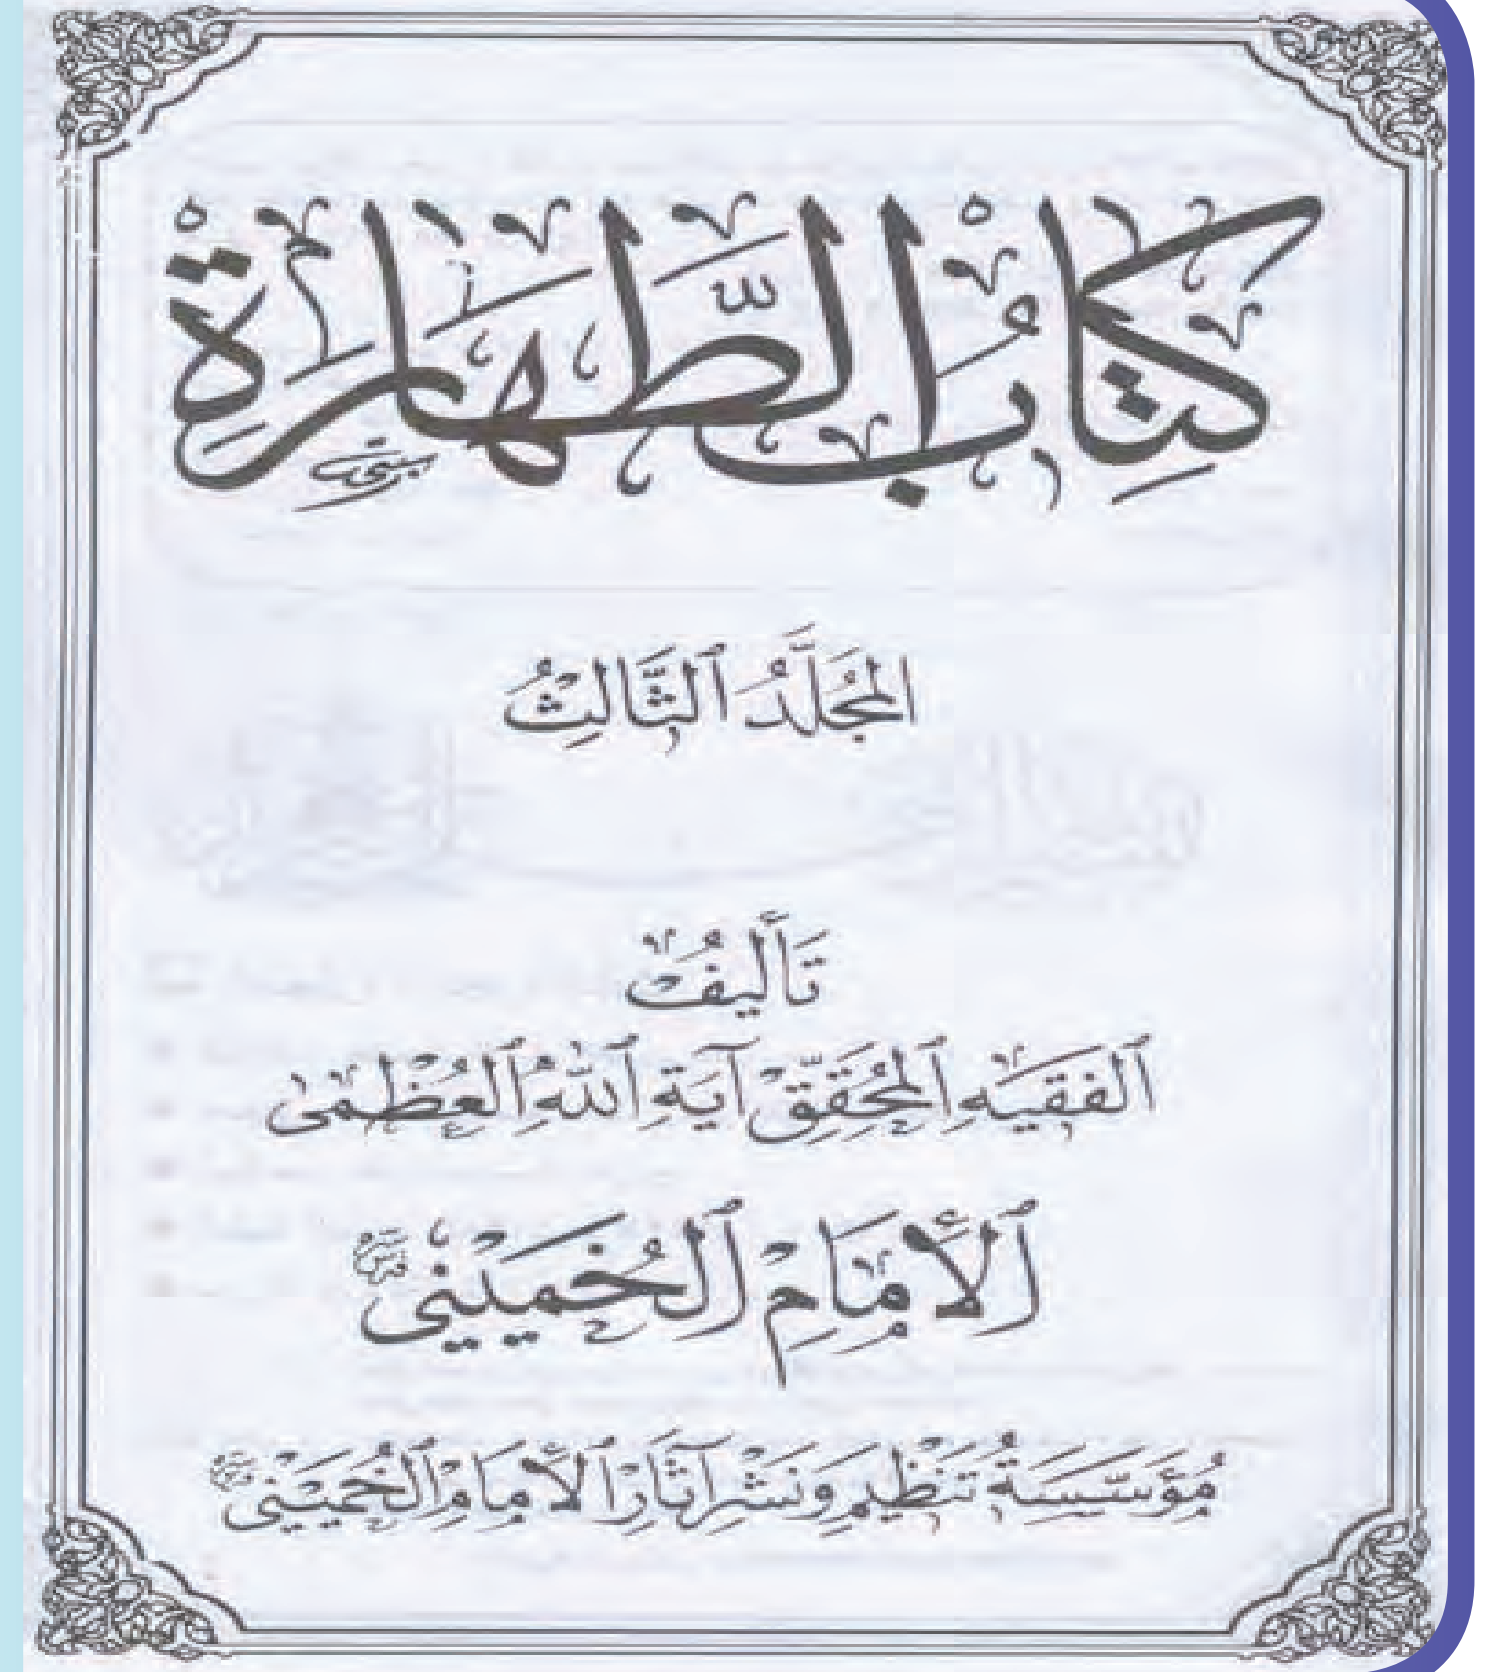 كِتَابُ الطَّهَارَةِ
المُجَلَّدُ الثَّالِثُ
تَأليفُ
الفَقيهِ المُحَقِّقِ آيَةِ اللهِ العُظْمىٰ
الإِمَامِ الخُمَيْني
مُؤَسَّسَةُ تَنْظيمِ وَنَشْرِ آثَارِ الإمَامِ الخُمَيْني